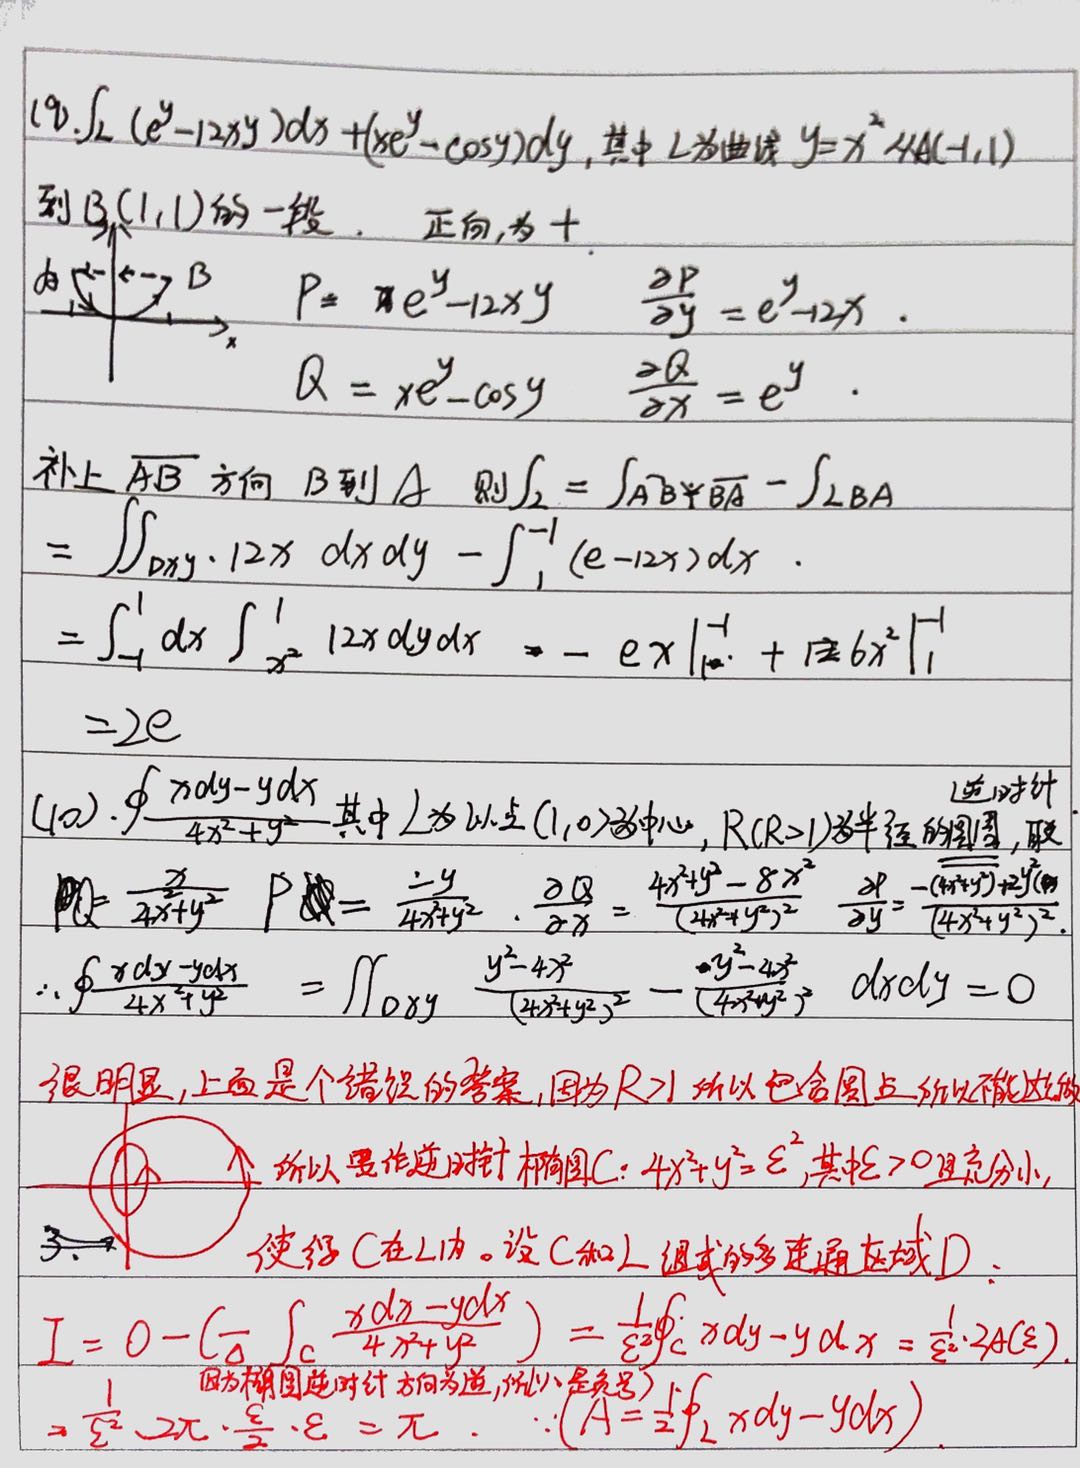 (9). ∫L (e^y-12xy)dx+(xe^y-cosy)dy, 其中L为曲线 y=x² 从A(-1,1)
到B(1,1)的一段. 正向,为+.
y
A B P= e^y-12xy ∂P/∂y = e^y-12x .
x
Q = xe^y-cosy ∂Q/∂x = e^y .
补上 AB 方向 B到A 则∫L = ∫AB+BA - ∫LBA
= ∬Dxy · 12x dxdy - ∫₁⁻¹ (e-12x)dx .
= ∫₋₁¹ dx ∫x²¹ 12xdydx - ex|₁⁻¹ + 6x²|₁⁻¹
=2e
(10). ∮ (xdy-ydx)/(4x²+y²) 其中L为以点(1,0)为中心, R(R>1)为半径的圆周, 取逆时针.
Q= x/(4x²+y²) P = -y/(4x²+y²) . ∂Q/∂x = (4x²+y²-8x²)/(4x²+y²)² ∂P/∂y = (-(4x²+y²)+2y²)/(4x²+y²)² .
∴ ∮ (xdy-ydx)/(4x²+y²) = ∬Dxy (y²-4x²)/(4x²+y²)² - (y²-4x²)/(4x²+y²)² dxdy = 0
很明显,上面是个错误的答案,因为R>1 所以包含圆点所以不能这么做
所以要作逆时针椭圆C: 4x²+y²=ε²,其中ε>0且充分小,
3.
使得C在L内。设C和L组成的多连通区域D:
I = 0-(- ∫c (xdx-ydx)/(4x²+y²)) = 1/ε² ∮c xdy-ydx = 1/ε²·2A(ε).
因为椭圆逆时针方向为逆,所以是负号)
= 1/ε² · 2π · ε/2 · ε = π . ∵(A = 1/2 ∮L xdy-ydx).